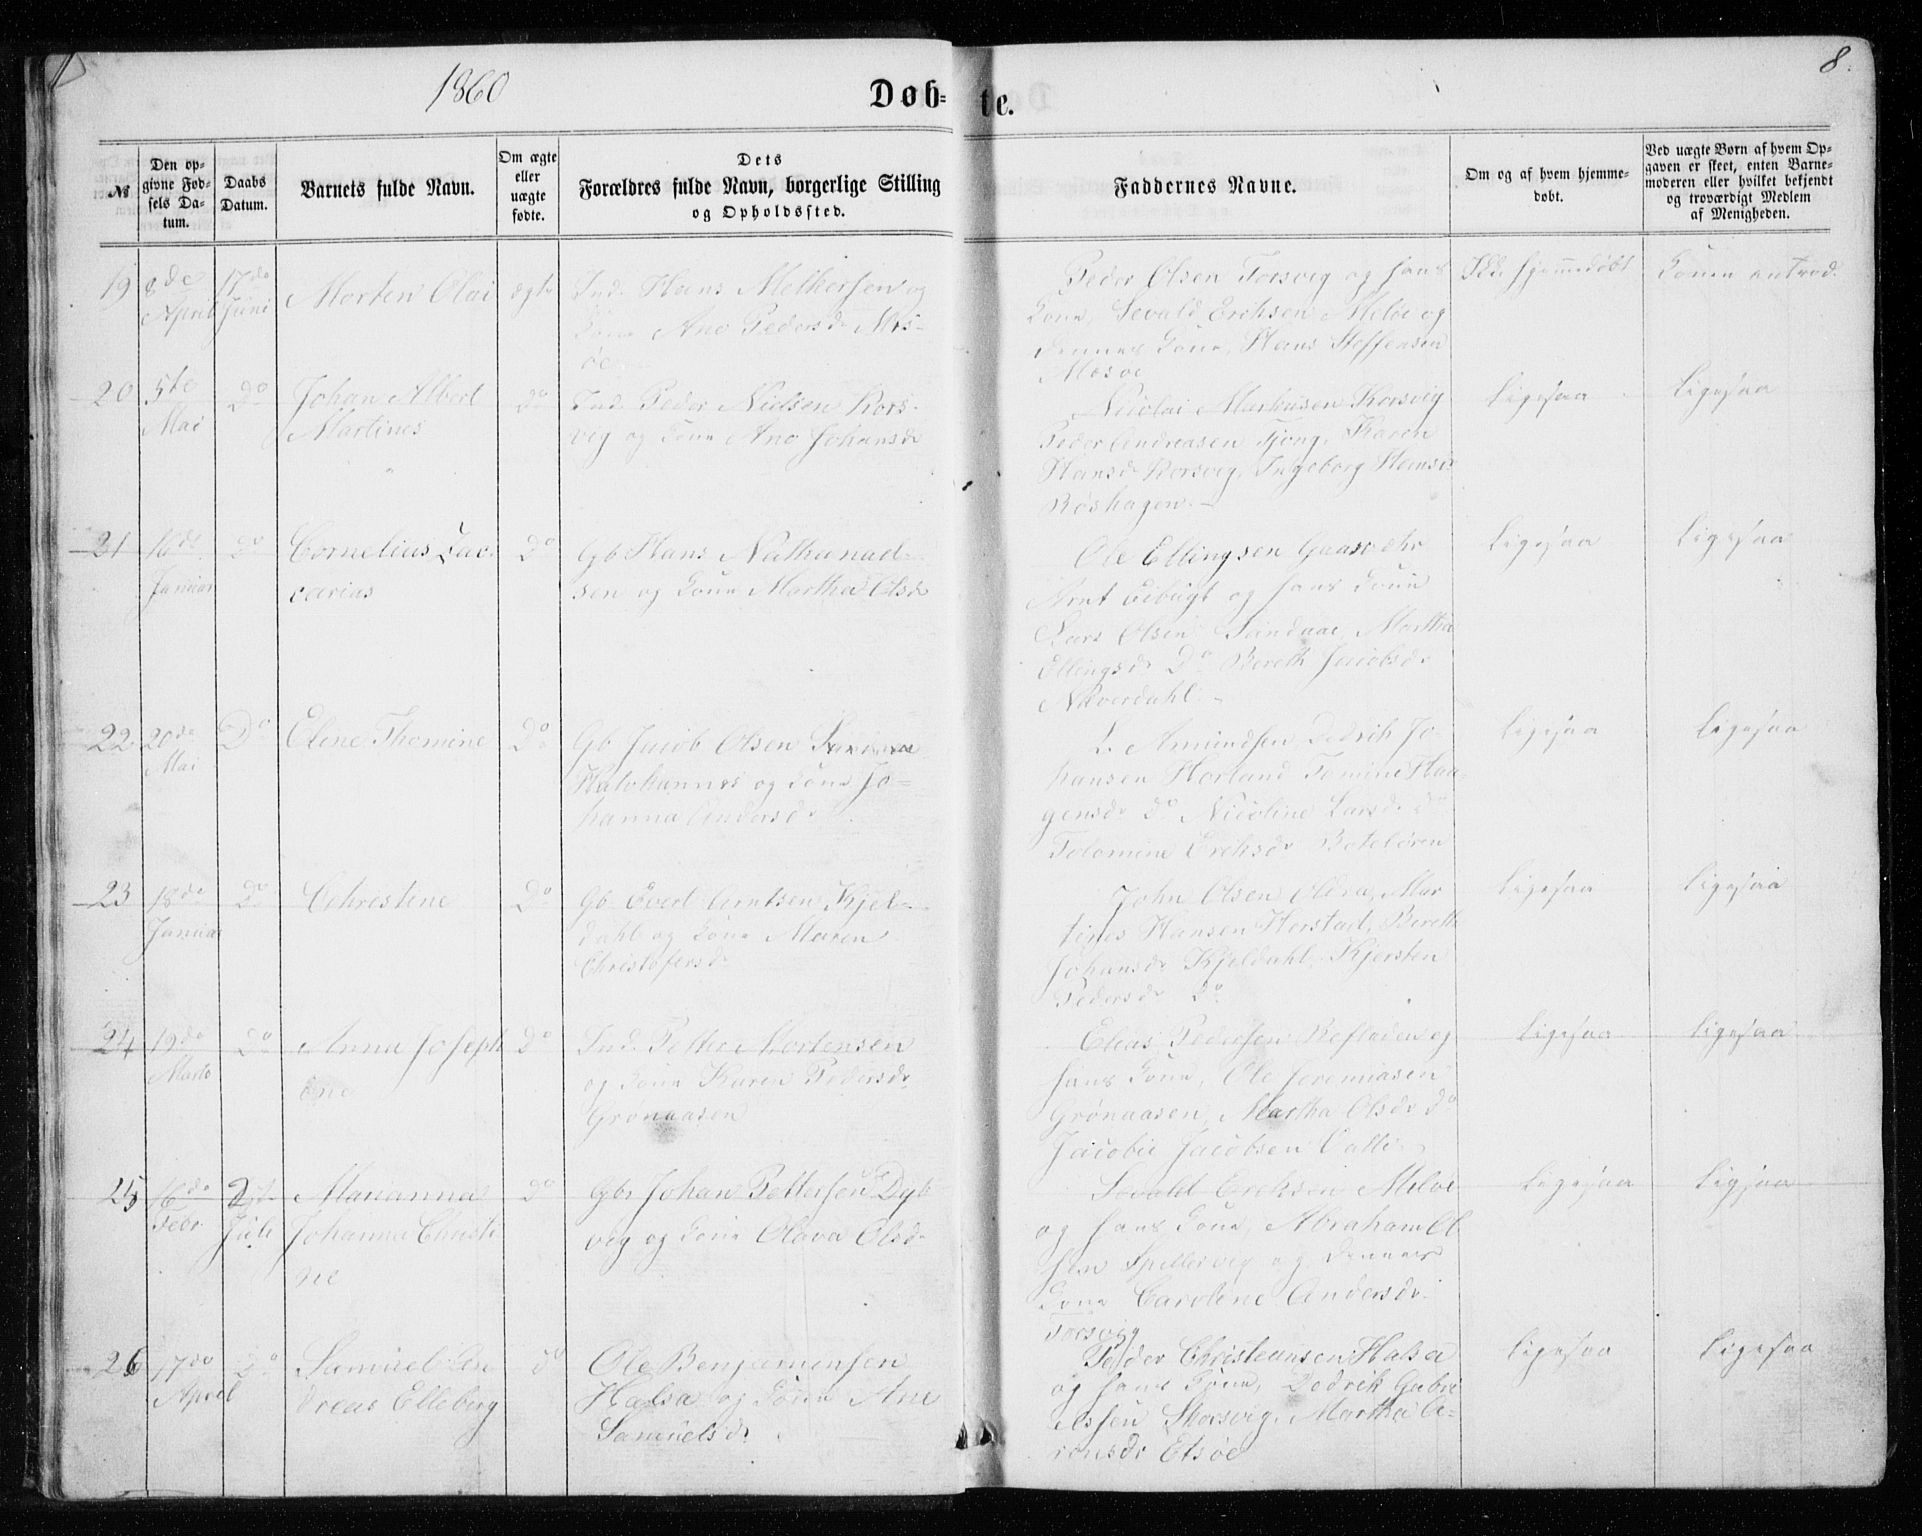 1860
Døb-
te.
8.
№
Den op-
givne Fød-
sels Da-
tum.
Daabs
Datum.
Barnets fulde Navn.
Om ægte
eller
uægte
fødte.
Dets
Forældres fulde Navn, borgerlige Stilling
og Opholdssted.
Faddernes Navne.
Om og af hvem hjemme-
døbt.
Ved uægte Børn af hvem Op-
gaven er skeet, enten Barne-
moderen eller hvilket bekjendt
og troværdigt Medlem
af Menigheden.
19
8de
April
17de
Juni
Morten Olai
ægte
Ind. Hans Melkersen og
Kone Ane Pedersdr Mes-
øe
Peder Olsen Torsvig og hans
Kone, Sevald Eriksen Meløe og
dennes Kone, Hans Steffensen
Mesøe
Ikke hjemmedøbt
20
5te
Mai
Do
Johan Albert
Martines
Do
Ind. Peder Nielsen Kors-
vig og Kone Ane Johansdr
Nicolai Markusen Korsvig
Peder Andreasen Tjong, Karen
Hansdr Korsvig, Ingeborg Hansdr
Røshagen.
Ligesaa
Ligesaa
21
16de
Januar
Do
Cornelius Zac-
carias
Do
Gb Hans Nathanael-
sen og Kone Martha Olsdr
Ole Ellingsen Gaasvær
Arnt Vebugt og hans Kone
Lars Olsen Sandaae, Martha
Ellingsdr Do Bereth Jacobsdr
Nkverdahl.
Ligesaa
Ligesaa
22
20de
Mai
Do
Eline Thomine
Do
Gb Jacob Olsen
og Kone Jo-
hanna Andersdr
L. Amundsen, Dedrik Jo-
hansen Horland Tomine Haa-
gensdr do Nicoline Larsdr do
Tolomine Eriksdr
Ligesaa
Ligesaa
23
18de
Januar
Do
Christine
Do
Gb Evert Arntsen Kjel-
dahl og Kone Maren
Christofersdr
John Olsen Oldra, Mar-
tines Hansen Horstad, Bereth
Johansdr Kjeldahl, Kjersten
Pedersdr Do
Ligesaa
Ligesaa
24
19de
Marts
Do
Anna Joseph
ine
Do
Ind. Petter Mortensen
og Kone Karen Pedersdr
Grønaasen
Elias Pedersen Resladen og
hans Kone, Ole Jeremiasen
Grønaasen, Martha Olsdr Do
Jacobie Jacobsen Valle
Ligesaa
Ligesaa
25
16de
Febr
Juli
Marianna
Johanna Christi
ne
do
Gbr Johan Pettersen Dyb-
vig og Kone Olava Olsdr
Sevald Eriksen Meløe
og hans Kone, Abraham Ol
sen Spellervig og dennes
Kone Caroline Andersdr
Torsvig
Ligesaa
Ligesaa
26
17de
April
Do
Samuel An
dreas Elleberg
do
Ole Benjaminsen
Halsa og Kone Ane
Samuelsdr.
Peder Christiansen Halsa
og hans Kone, Dedrik Gabri
elssen Storsvig, Martha A-
ronsdr Etsøe
Ligesaa
Ligesaa